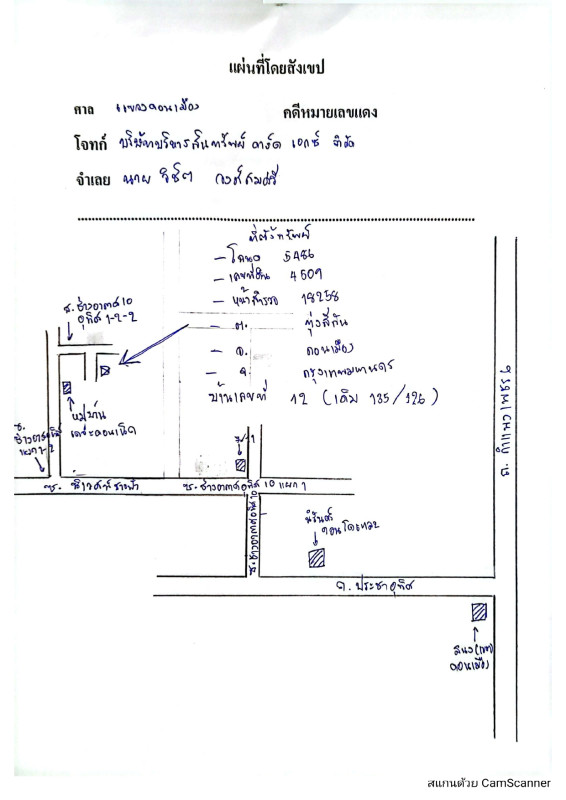 แผ่นที่โดยสังเขป
ศาล แขวงดอนเมือง คดีหมายเลขแดง
โจทก์ บริษัทบริหารสินทรัพย์ คาร์ด เอกซ์ จำกัด
จำเลย นาย วิชิต
ที่ตั้งทรัพย์
- โฉนด 5486
- เลขที่ดิน 4509
- หน้าสำรวจ 18258
- ต. ทุ่งสีกัน
- อ. ดอนเมือง
- จ. กรุงเทพมหานคร
บ้านเลขที่ 12 (เดิม 135/126)
ซ. ช่างอากาศ
อุทิศ 1-2-2
10
หมู่บ้าน
ซ.
ช่างอากาศอุทิศ
แยก 1-2
ซ. ช่างอากาศอุทิศ 10 แยก 1
ซ. ช่างอากาศอุทิศ 10
ดอนโดะ
ถ. ประชาอุทิศ
ดอนเมือง
สแกนด้วย CamScanner